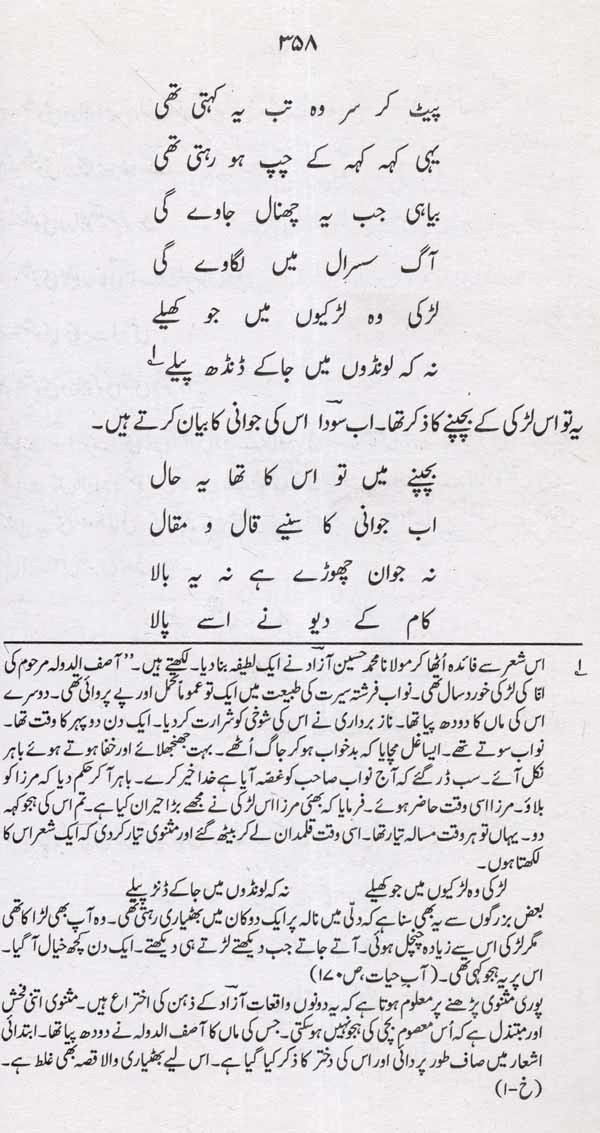 ۳۵۸
پیٹ کر سر وہ تب یہ کہتی تھی
یہی کہہ کہہ کے چپ ہو رہتی تھی
بیاہی جب یہ چھنال جاوے گی
آگ سسرال میں لگاوے گی
لڑکی وہ لڑکیوں میں جو کھیلے
نہ کہ لونڈوں میں جا کے ڈنڈھ پیلے ؂۱
یہ تو اس لڑکی کے بچپنے کا ذکر تھا۔ اب سودا اس کی جوانی کا بیان کرتے ہیں۔
بچپنے میں تو اس کا تھا یہ حال
اب جوانی کا سنیے قال و مقال
نہ جوان چھوڑے ہے نہ یہ بالا
کام کے دیو نے اسے پالا
؂۱ اس شعر سے فائدہ اُٹھا کر مولانا محمد حسین آزاد نے ایک لطیفہ بنا دیا۔ لکھتے ہیں۔ ”آصف الدولہ مرحوم کی
انّا کی لڑکی خورد سال تھی۔ نواب فرشتہ سیرت کی طبیعت میں ایک تو عموماً تحمل اور بے پروائی تھی۔ دوسرے
اس کی ماں کا دودھ پیا تھا۔ ناز برداری نے اس کی شوخی کو شرارت کر دیا۔ ایک دن دوپہر کا وقت تھا۔
نواب سوتے تھے۔ ایسا غل مچایا کہ بدخواب ہو کر جاگ اٹھے۔ بہت جھنجھلائے اور خفا ہوتے ہوئے باہر
نکل آئے۔ سب ڈر گئے کہ آج نواب صاحب کو غصّہ آیا ہے خدا خیر کرے۔ باہر آ کر حکم دیا کہ مرزا کو
بلاؤ۔ مرزا اسی وقت حاضر ہوئے۔ فرمایا کہ بھئی مرزا اس لڑکی نے مجھے بڑا حیران کیا ہے۔ تم اس کی ہجو کہہ
دو۔ یہاں تو ہر وقت مسالہ تیار تھا۔ اسی وقت قلمدان لے کر بیٹھ گئے اور مثنوی تیار کر دی کہ ایک شعر اس کا
لکھتا ہوں۔
لڑکی وہ لڑکیوں میں جو کھیلے نہ کہ لونڈوں میں جا کے ڈنڑ پیلے
بعض بزرگوں سے یہ بھی سنا ہے کہ دلّی میں نالہ پر ایک دوکان میں بھٹیاری رہتی تھی۔ وہ آپ بھی لڑاکا تھی
مگر لڑکی اس سے زیادہ چنچل ہوئی۔ آتے جاتے جب دیکھتے لڑتے ہی دیکھتے۔ ایک دن کچھ خیال آ گیا۔
اس پر یہ ہجو کہی تھی۔ (آب حیات، ص ۱۷۰)
پوری مثنوی پڑھنے پر معلوم ہوتا ہے کہ یہ دونوں واقعات آزاد کے ذہن کی اختراع ہیں۔ مثنوی اتنی فحش
اور مبتذل ہے کہ اُس معصوم بچی کی ہجو نہیں ہو سکتی۔ جس کی ماں کا آصف الدولہ نے دودھ پیا تھا۔ ابتدائی
اشعار میں صاف طور پر دائی اور اس کی دختر کا ذکر کیا گیا ہے۔ اس لیے بھٹیاری والا قصہ بھی غلط ہے۔
(خ-۱)